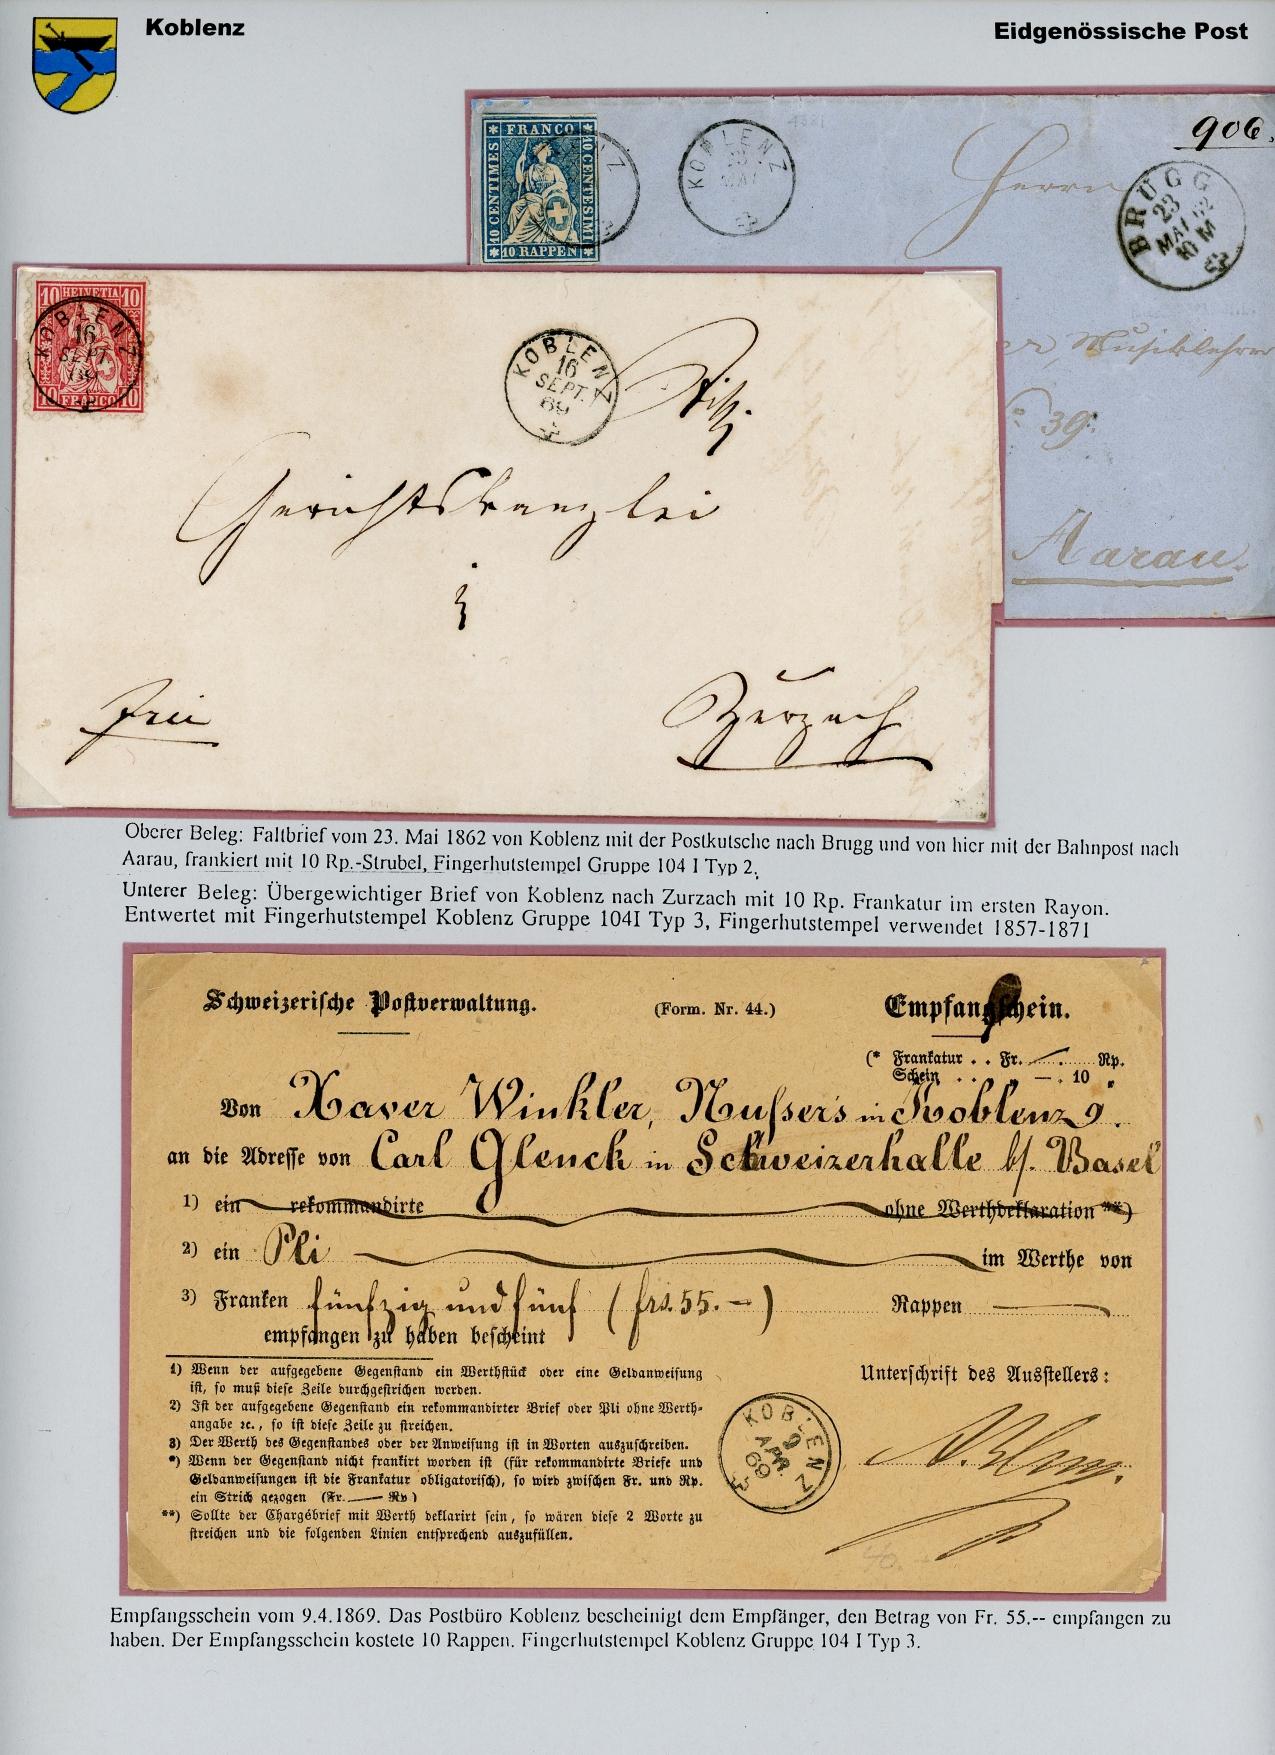 Koblenz
Eidgenössische Post
906.
FRANCO
10 CENTIMES
10 CENTESIMI
10 RAPPEN
KOBLENZ
23
MAI
BRUGG
23
MAI 62
10 M
Herrn
Musiklehrer
39.
Aarau.
10 HELVETIA 10
10 FRANCO 10
KOBLENZ
16
SEPT.
69
KOBLENZ
16
SEPT.
69
Gerichtskanzlei
Zurzach
Oberer Beleg: Faltbrief vom 23. Mai 1862 von Koblenz mit der Postkutsche nach Brugg und von hier mit der Bahnpost nach
Aarau, frankiert mit 10 Rp.-Strubel, Fingerhutstempel Gruppe 104 I Typ 2.
Unterer Beleg: Übergewichtiger Brief von Koblenz nach Zurzach mit 10 Rp. Frankatur im ersten Rayon.
Entwertet mit Fingerhutstempel Koblenz Gruppe 104I Typ 3, Fingerhutstempel verwendet 1857-1871
Schweizerische Postverwaltung. (Form. Nr. 44.) Empfangschein.
(* Frankatur . . Fr. — Rp.
Schein . . „ — . 10 „
Von Xaver Winkler, Nussers in Koblenz
an die Adresse von Carl Glenck in Schweizerhalle b/. Basel
1) ein rekommandirte ohne Werthdeklaration **)
2) ein Pli im Werthe von
3) Franken fünfzig und fünf (frs. 55. –) Rappen —
empfangen zu haben bescheint
1) Wenn der aufgegebene Gegenstand ein Werthstück oder eine Geldanweisung
ist, so muß diese Zeile durchgestrichen werden.
2) Ist der aufgegebene Gegenstand ein rekommandirter Brief oder Pli ohne Werth-
angabe ꝛc., so ist diese Zeile zu streichen.
3) Der Werth des Gegenstandes oder der Anweisung ist in Worten auszuschreiben.
*) Wenn der Gegenstand nicht frankirt worden ist (für rekommandirte Briefe und
Geldanweisungen ist die Frankatur obligatorisch), so wird zwischen Fr. und Rp.
ein Strich gezogen (Fr. — Rp)
**) Sollte der Chargébrief mit Werth deklarirt sein, so wären diese 2 Worte zu
streichen und die folgenden Linien entsprechend auszufüllen.
Unterschrift des Ausstellers:
KOBLENZ
9
APR.
69
Empfangsschein vom 9.4.1869. Das Postbüro Koblenz bescheinigt dem Empfänger, den Betrag von Fr. 55.-- empfangen zu
haben. Der Empfangsschein kostete 10 Rappen. Fingerhutstempel Koblenz Gruppe 104 I Typ 3.